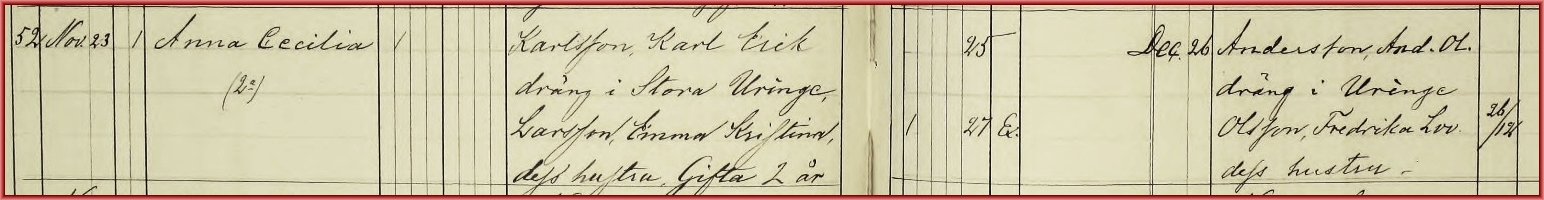 52 Nov. 23 1 Anna Cecilia 1 Karlsson, Karl Erik 25 Dec. 26 Andersson, And. Ol.
(2a) dräng i Stora Uringe, dräng i Uringe
Larsson, Emma Kristina, 1 27 Ex. Olsson, Fredrika Lov. 26/12
dess hustru, Gifta 2 år dess hustru -